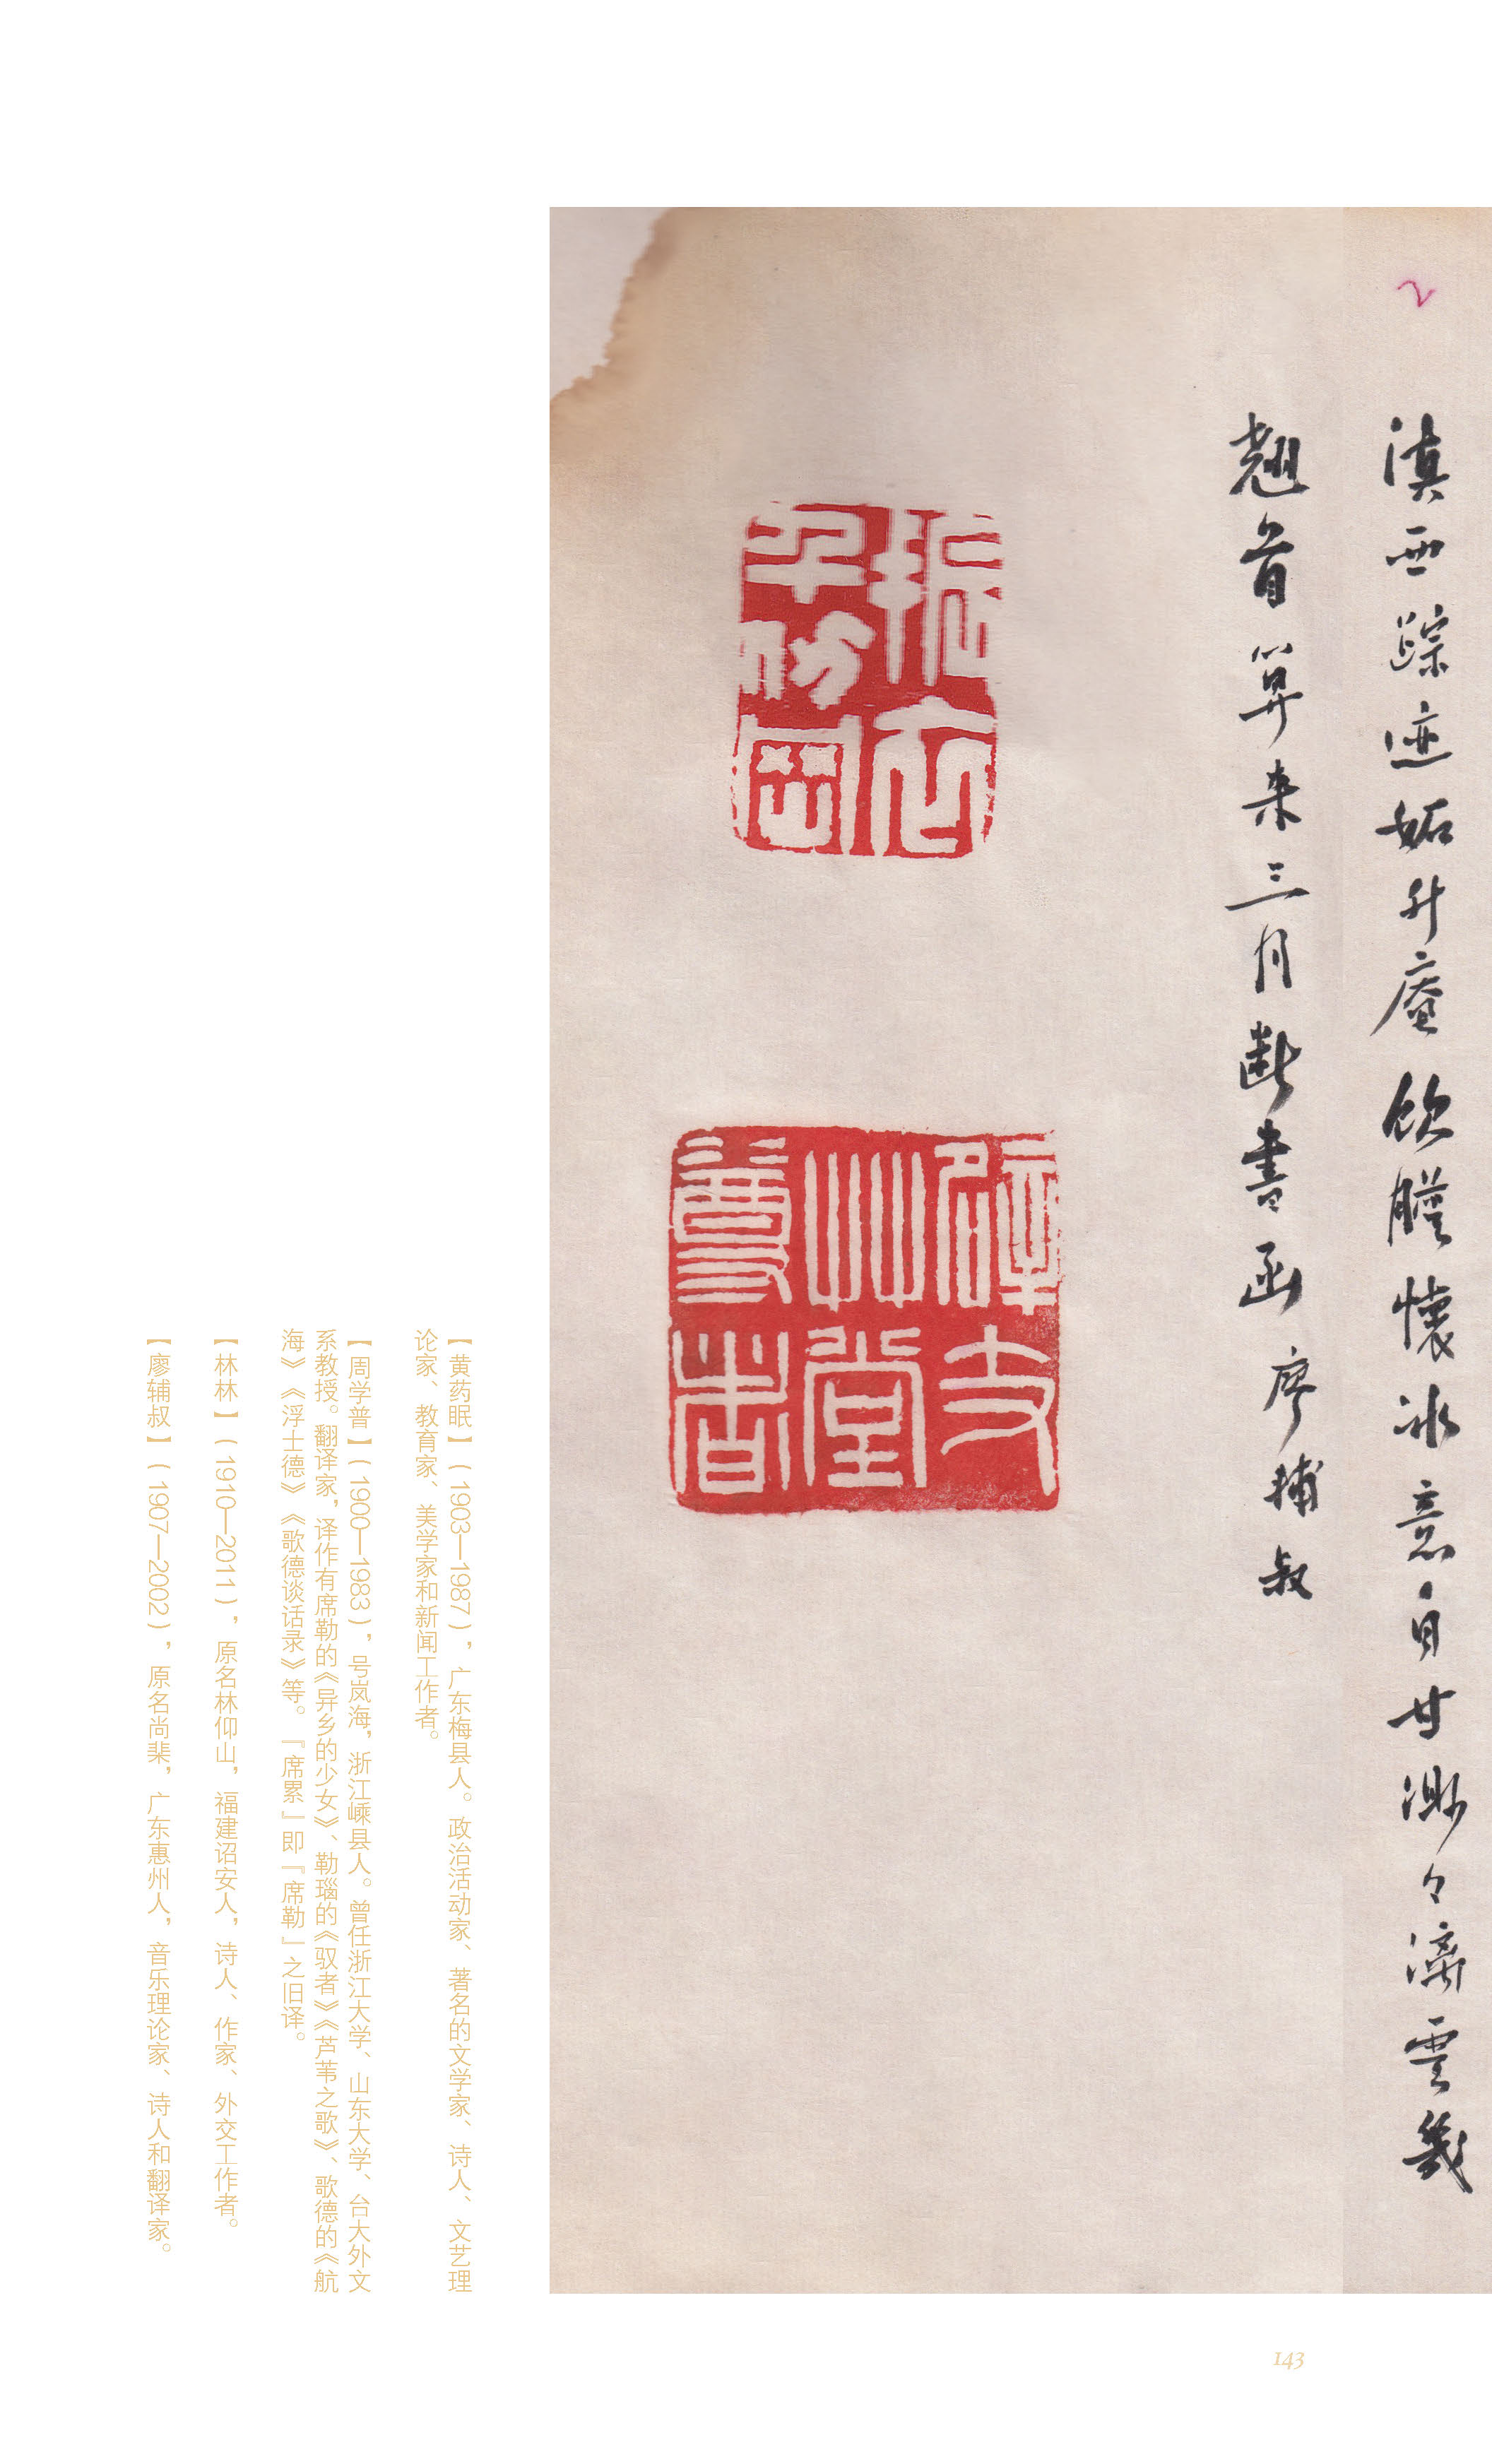 2
滇西踪迹妬升庵飲膽懷冰意自甘渺々濟雲幾
翹首算来三月斷書函廖輔叔
振衣千仞岡
碎支
艸堂
養者
【黄药眠】（1903—1987），广东梅县人。政治活动家、著名的文学家、诗人、文艺理
论家、教育家、美学家和新闻工作者。
【周学普】（1900—1983），号岚海，浙江嵊县人。曾任浙江大学、山东大学、台大外文
系教授。翻译家，译作有席勒的《异乡的少女》、勒瑙的《驭者》《芦苇之歌》、歌德的《航
海》《浮士德》《歌德谈话录》等。『席累』即『席勒』之旧译。
【林林】（1910—2011），原名林仰山，福建诏安人，诗人、作家、外交工作者。
【廖辅叔】（1907—2002），原名尚棐，广东惠州人，音乐理论家、诗人和翻译家。
143